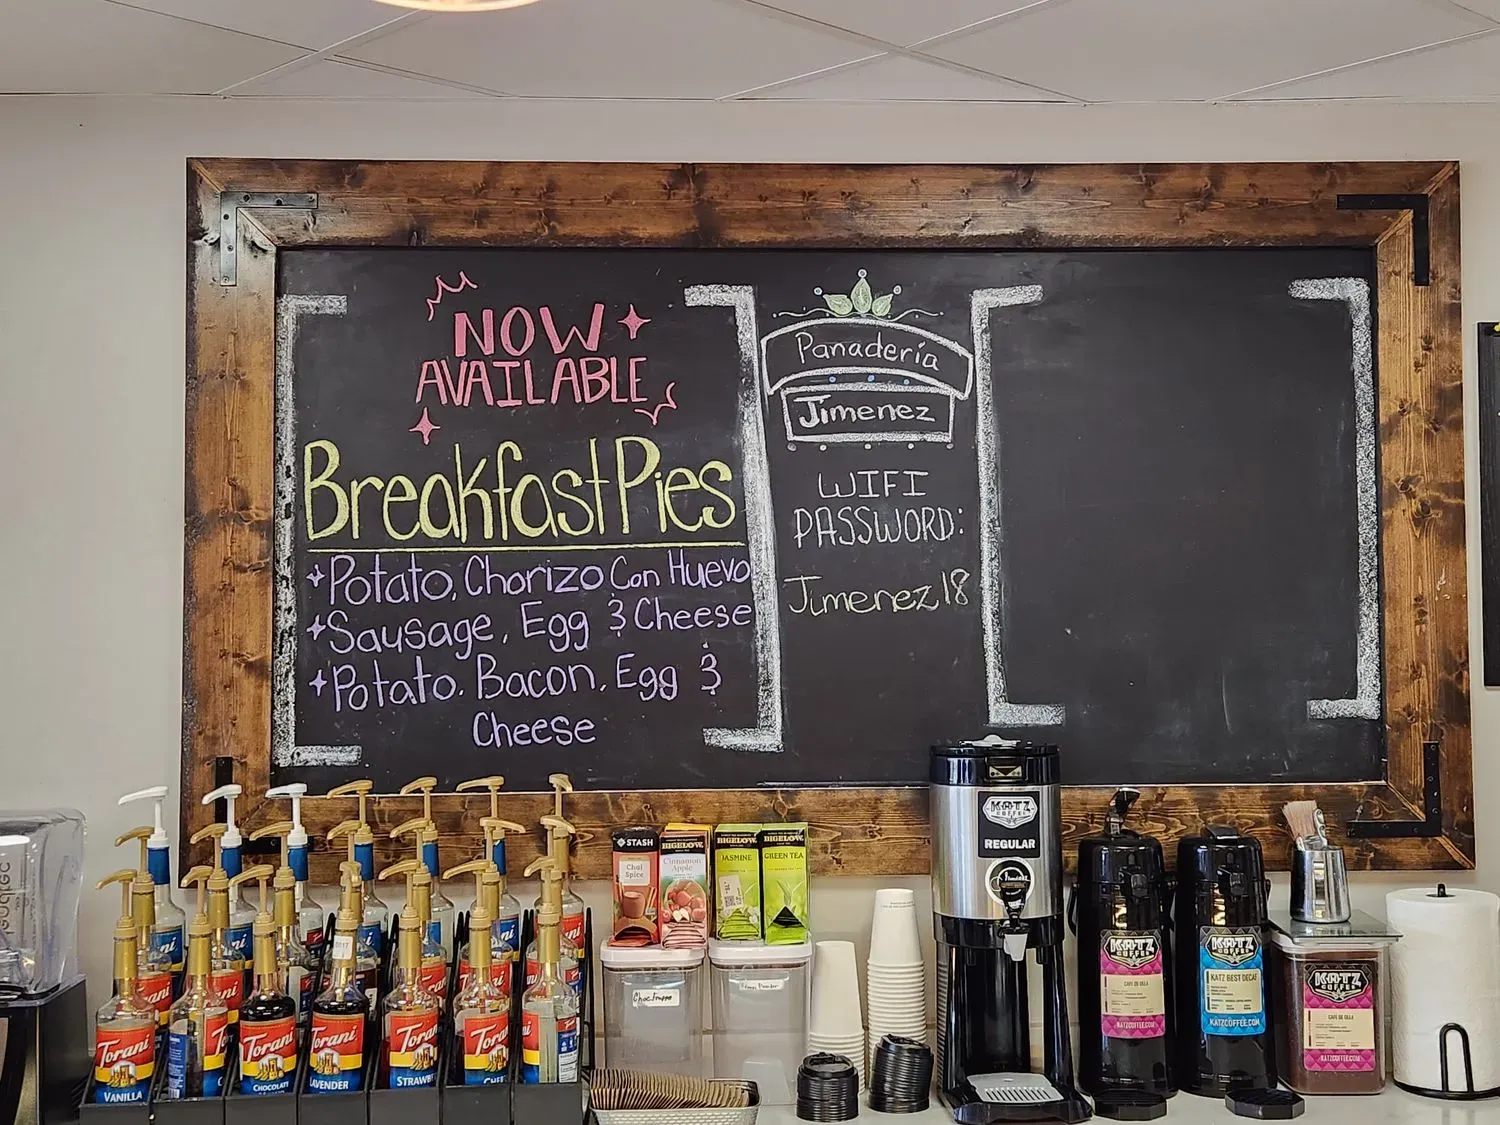 NOW
AVAILABLE
Breakfast Pies
Potato, Chorizo Con Huevo
Sausage, Egg & Cheese
Potato, Bacon, Egg &
Cheese
Panadería
Jimenez
WIFI
PASSWORD:
Jimenez18
STASH
Chai
Spice
BIGELOW
Cinnamon
Apple
BIGELOW
JASMINE
BIGELOW
GREEN TEA
KATZ
COFFEE
REGULAR
KATZ
COFFEE
CAFE DE OLLA
KATZCOFFEE.COM
KATZ
COFFEE
KATZ BEST DECAF
KATZCOFFEE.COM
KATZ
COFFEE
CAFE DE OLLA
KATZCOFFEE.COM
Torani
VANILLA
Torani
CHOCOLATE
Torani
LAVENDER
Torani
STRAWB
Torani